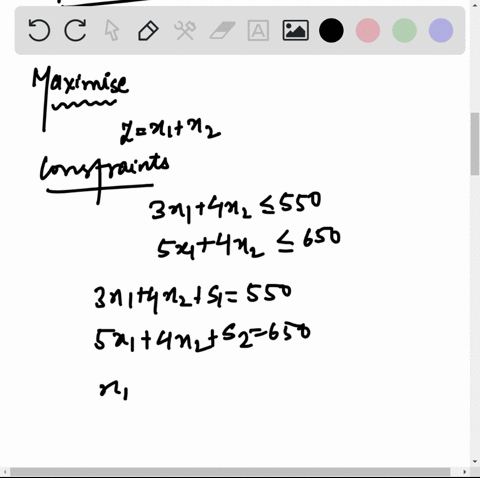 A
Maximise
Z=x₁+x₂
Constraints
3x₁+4x₂≤550
5x₁+4x₂≤650
3x₁+4x₂+S₁=550
5x₁+4x₂+S₂=650
x₁